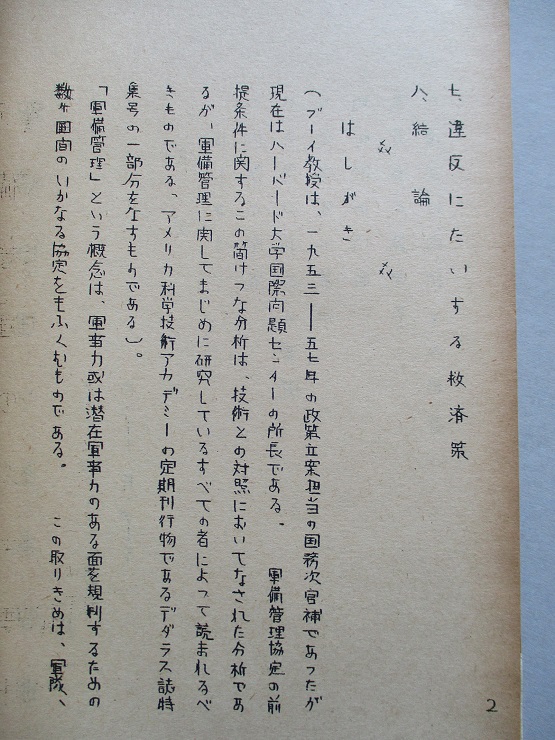 七、違反にたいする救済策
八、結論
はしがき
(ブーイ教授は、一九五三——五七年の政策立案担当の国務次官補であったが
現在はハーバード大学国際問題センターの所長である。 軍備管理協定の前
提条件に関するこの簡けつな分析は、技術との対照においてなされた分析であ
るが、軍備管理に関してまじめに研究しているすべての者によって読まれるべ
きものである、アメリカ科学技術アカデミーの定期刊行物であるデダラス誌特
集号の一部分をなすものである)。
「軍備管理」という概念は、軍事力或は潜在軍事力のある面を規制するための
数ヶ国間のいかなる協定をもふくむものである。 この取りきめは、軍隊、
2